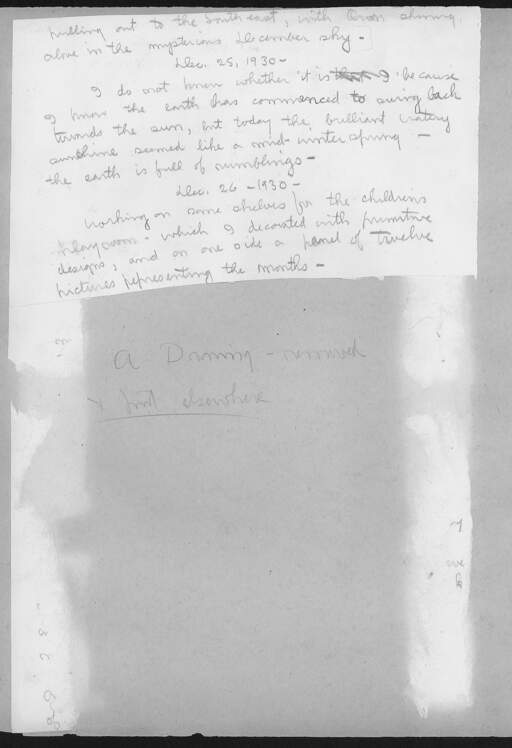 pulling out to the southeast, with Orion shining
alone in the mysterious December sky -
Dec. 25, 1930 -
I do not know whether it is because
I know the earth has commenced to swing back
towards the sun, but today the brilliant watery
sunshine seemed like a mid-winter spring -
the earth is full of rumblings -
Dec. 26 - 1930 -
Working on some shelves for the childrens
playroom - which I decorated with primitive
designs, and on one side a panel of twelve
pictures representing the months -
on
A Drawing - removed
& put elsewhere
y
we